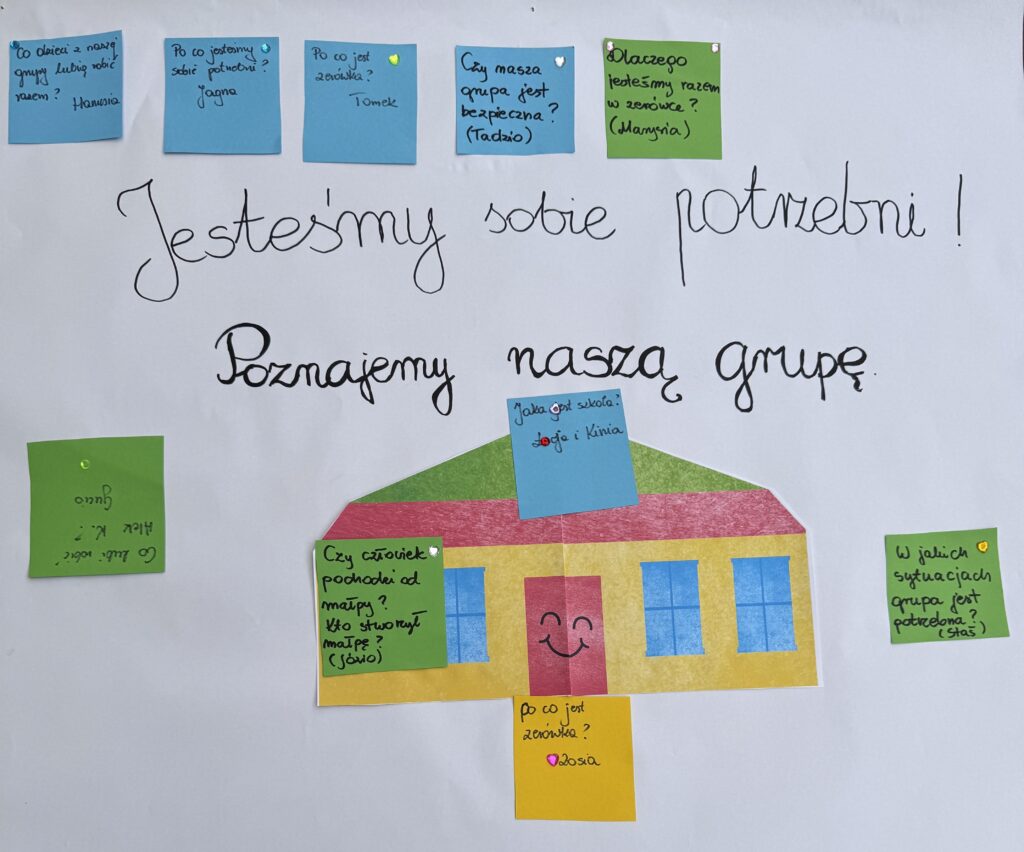 Co dzieci z naszej
grupy lubią robić
razem?
Hanusia
Po co jesteśmy
sobie potrzebni?
Jagna
Po co jest
zerówka?
Tomek
Czy nasza
grupa jest
bezpieczna?
(Tadzio)
Dlaczego
jesteśmy razem
w zerówce?
(Marysia)
Jesteśmy sobie potrzebni!
Poznajemy naszą grupę.
Jaka jest szkoła?
i Kinia
Co lubi robić
Alek K.?
Gucio
Czy człowiek
pochodzi od
małpy?
Kto stworzył
małpę?
(Józio)
W jakich
sytuacjach
grupa jest
potrzebna?
(Staś)
Po co jest
zerówka?
Zosia